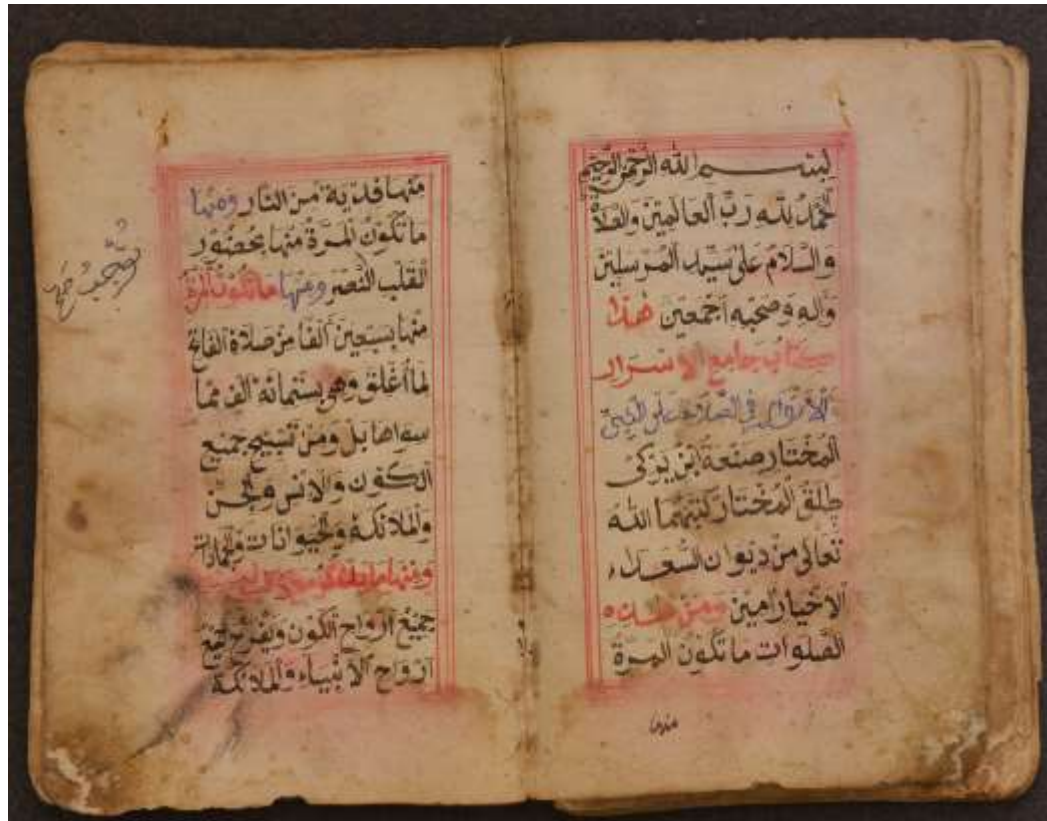 بسم الله الرحمن الرحيم
الحمد لله رب العالمين والصلاة
والسلام على سيد المرسلين
وآله وصحبه أجمعين هذا
كتاب جامع الاسرار
في الصلاة على النبي
المختار صنعة ابن يزكى
المختار كتبهما الله
تعالى من ديوان السعداء
الاخيار امين ومن هذه
الصلوات ما تكون المرة
منها
منها فدية من النار ومنها
ما تكون المرة منها بحضور
القلب ومنها ما تكون المرة
منها بسبعين ألفا من صلاة الفاتح
لما أغلق وهي بستمائة الف مما
سواها بل ومن تسبيح جميع
الكون والانس والجن
والملائكة والحيوانات والجمادات
ومنها ما
جميع ارواح الكون ويفرح جميع
ارواح الأنبياء والملائكة